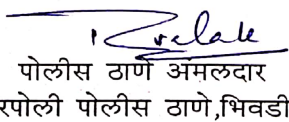 पोलीस ठाणे अंमलदार
रपोली पोलीस ठाणे,भिवडी